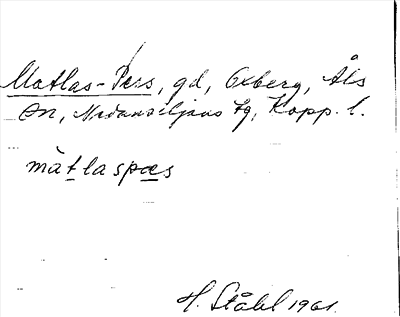 Matlas-Pers, gd, Oxberg, Åls
sn, Nedansiljans tg, Kopp. l.
màtlaspæs
H. Ståhl 1961.